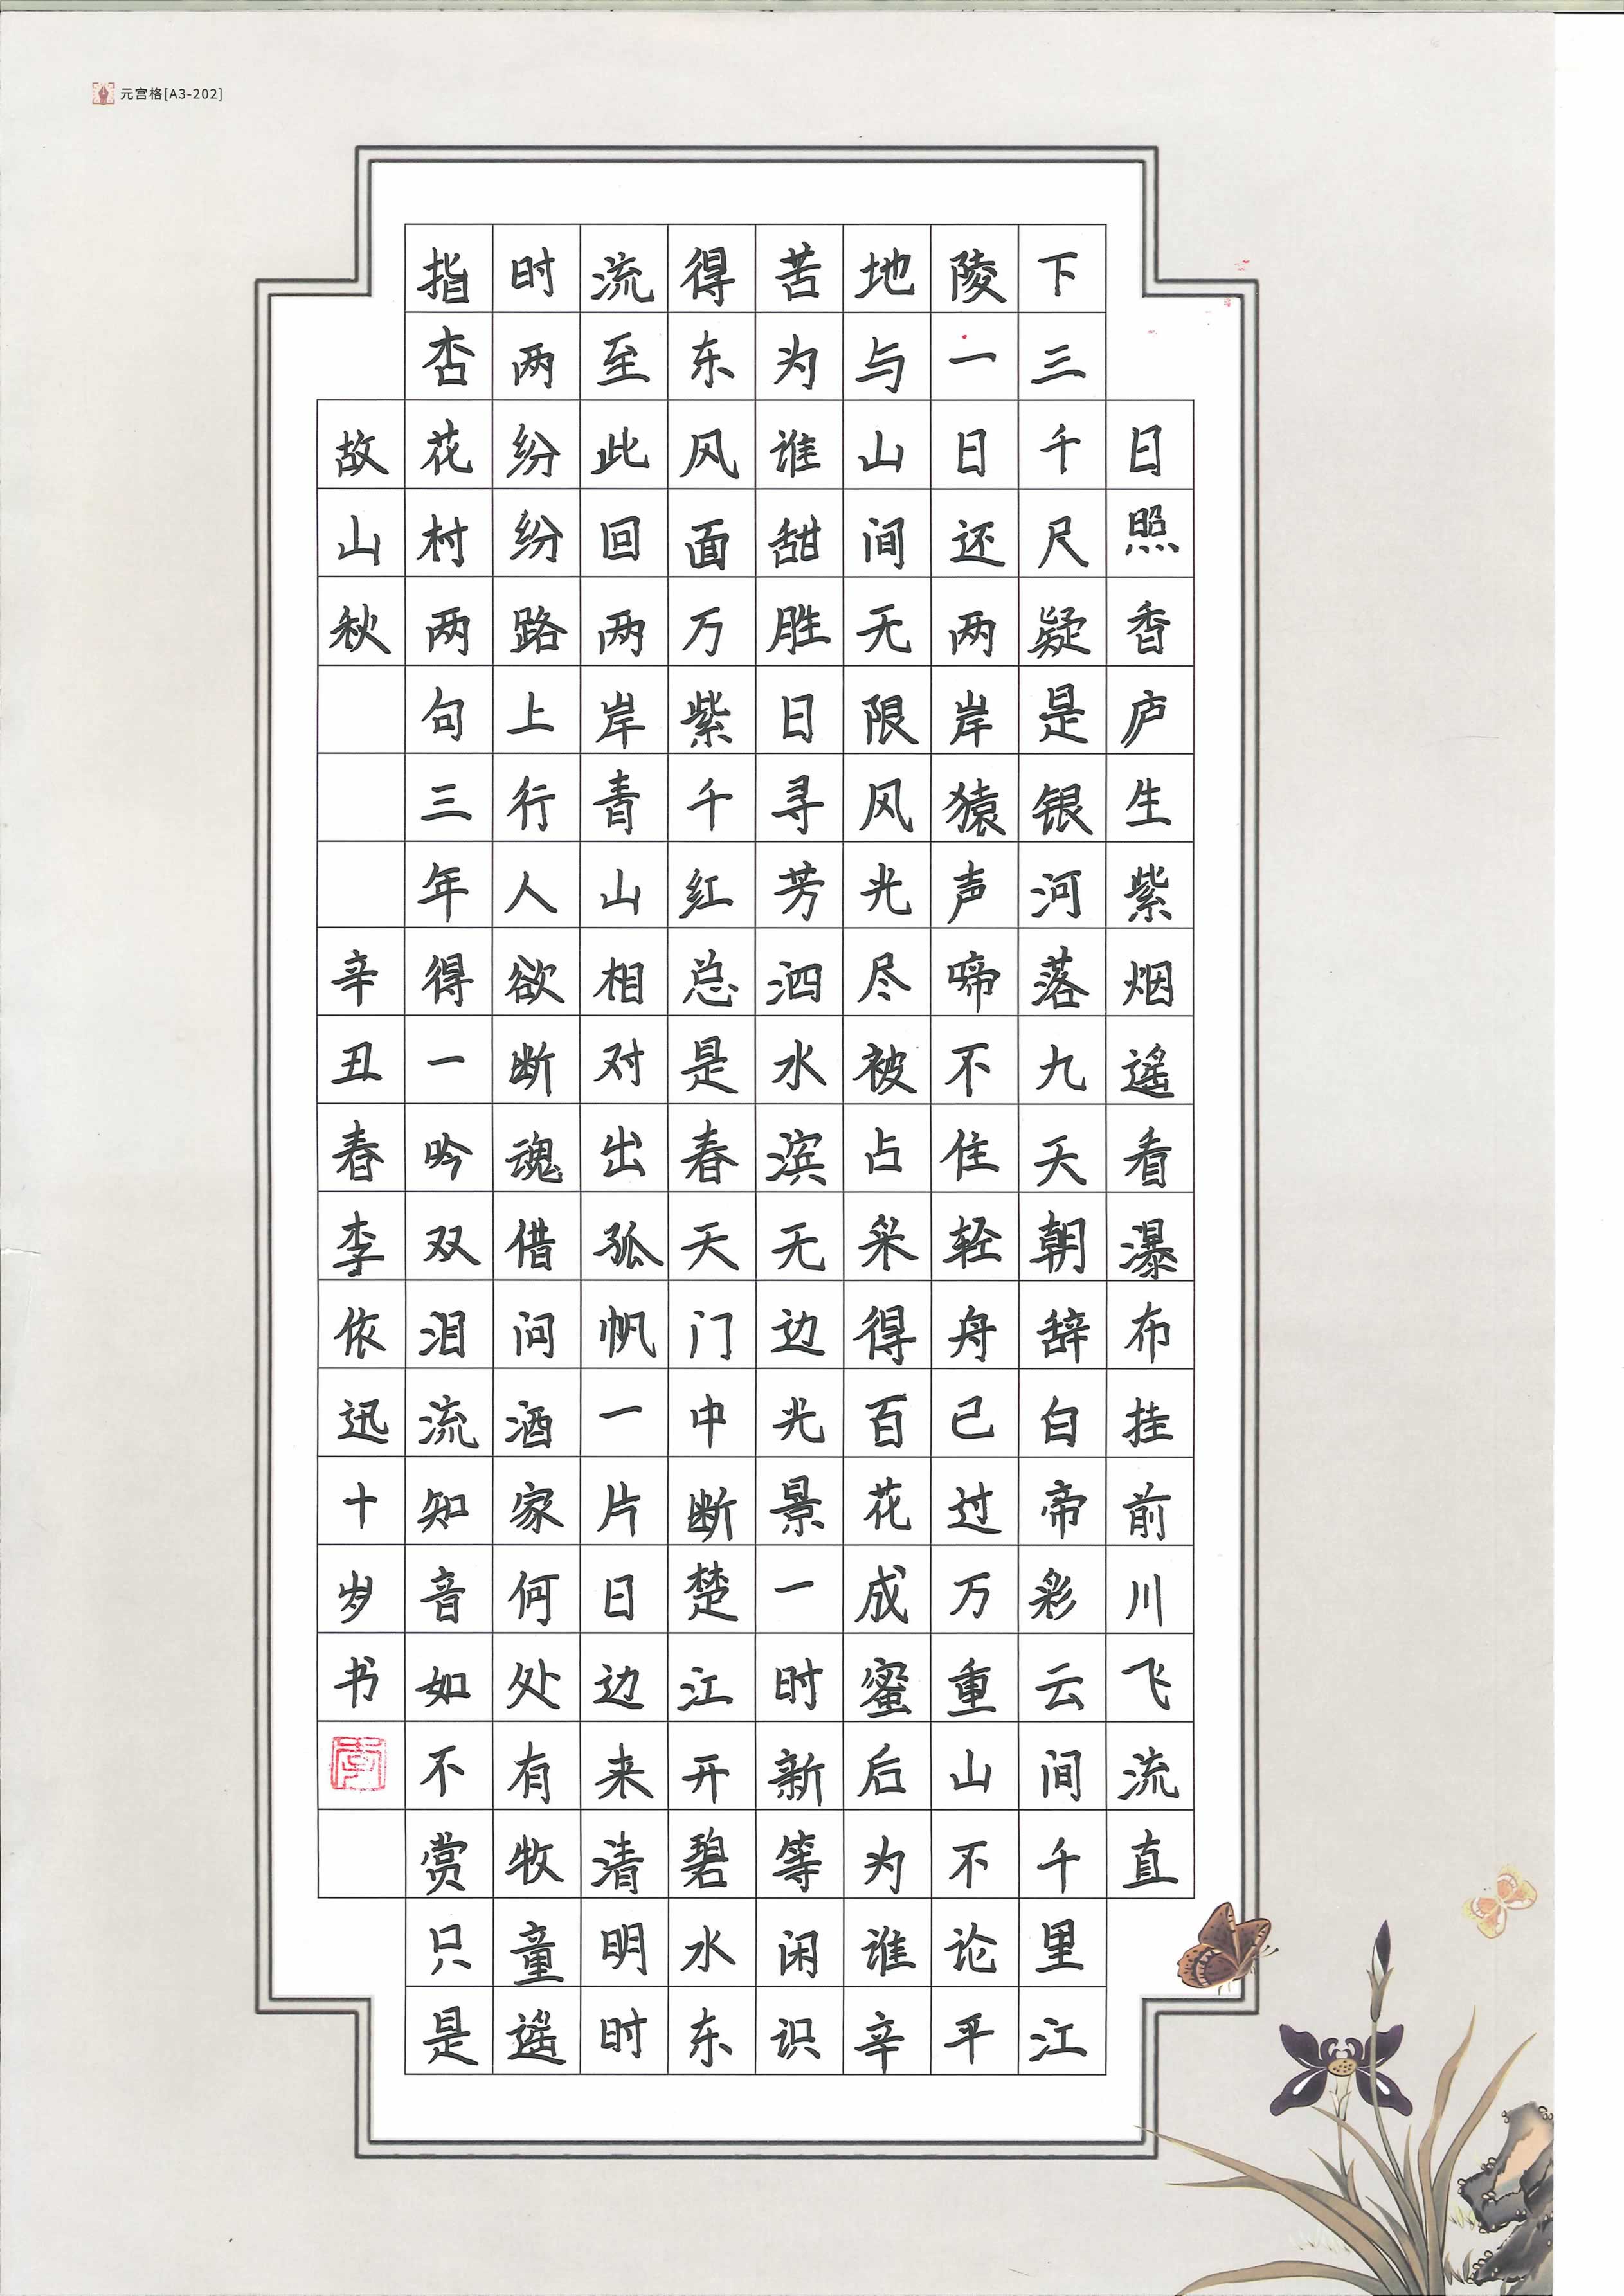 元宫格[A3-202]
日照香庐生紫烟遥看瀑布挂前川飞流直
下三千尺疑是银河落九天朝辞白帝彩云间千里江
陵一日还两岸猿声啼不住轻舟己过万重山不论平
地与山间无限风光尽被占采得百花成蜜后为谁辛
苦为谁甜胜日寻芳泗水滨无边光景一时新等闲识
得东风面万紫千红总是春天门中断楚江开碧水东
流至此回两岸青山相对出孤帆一片日边来清明时
时两纷纷路上行人欲断魂借问酒家何处有牧童遥
指杏花村两句三年得一吟双泪流知音如不赏只是
故山秋 辛丑春李依迅十岁书